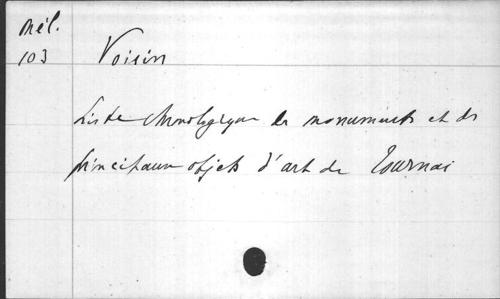 Mél.
103 Voisin
Liste chronologique des monuments et des
principaux objets d'art de Tournai